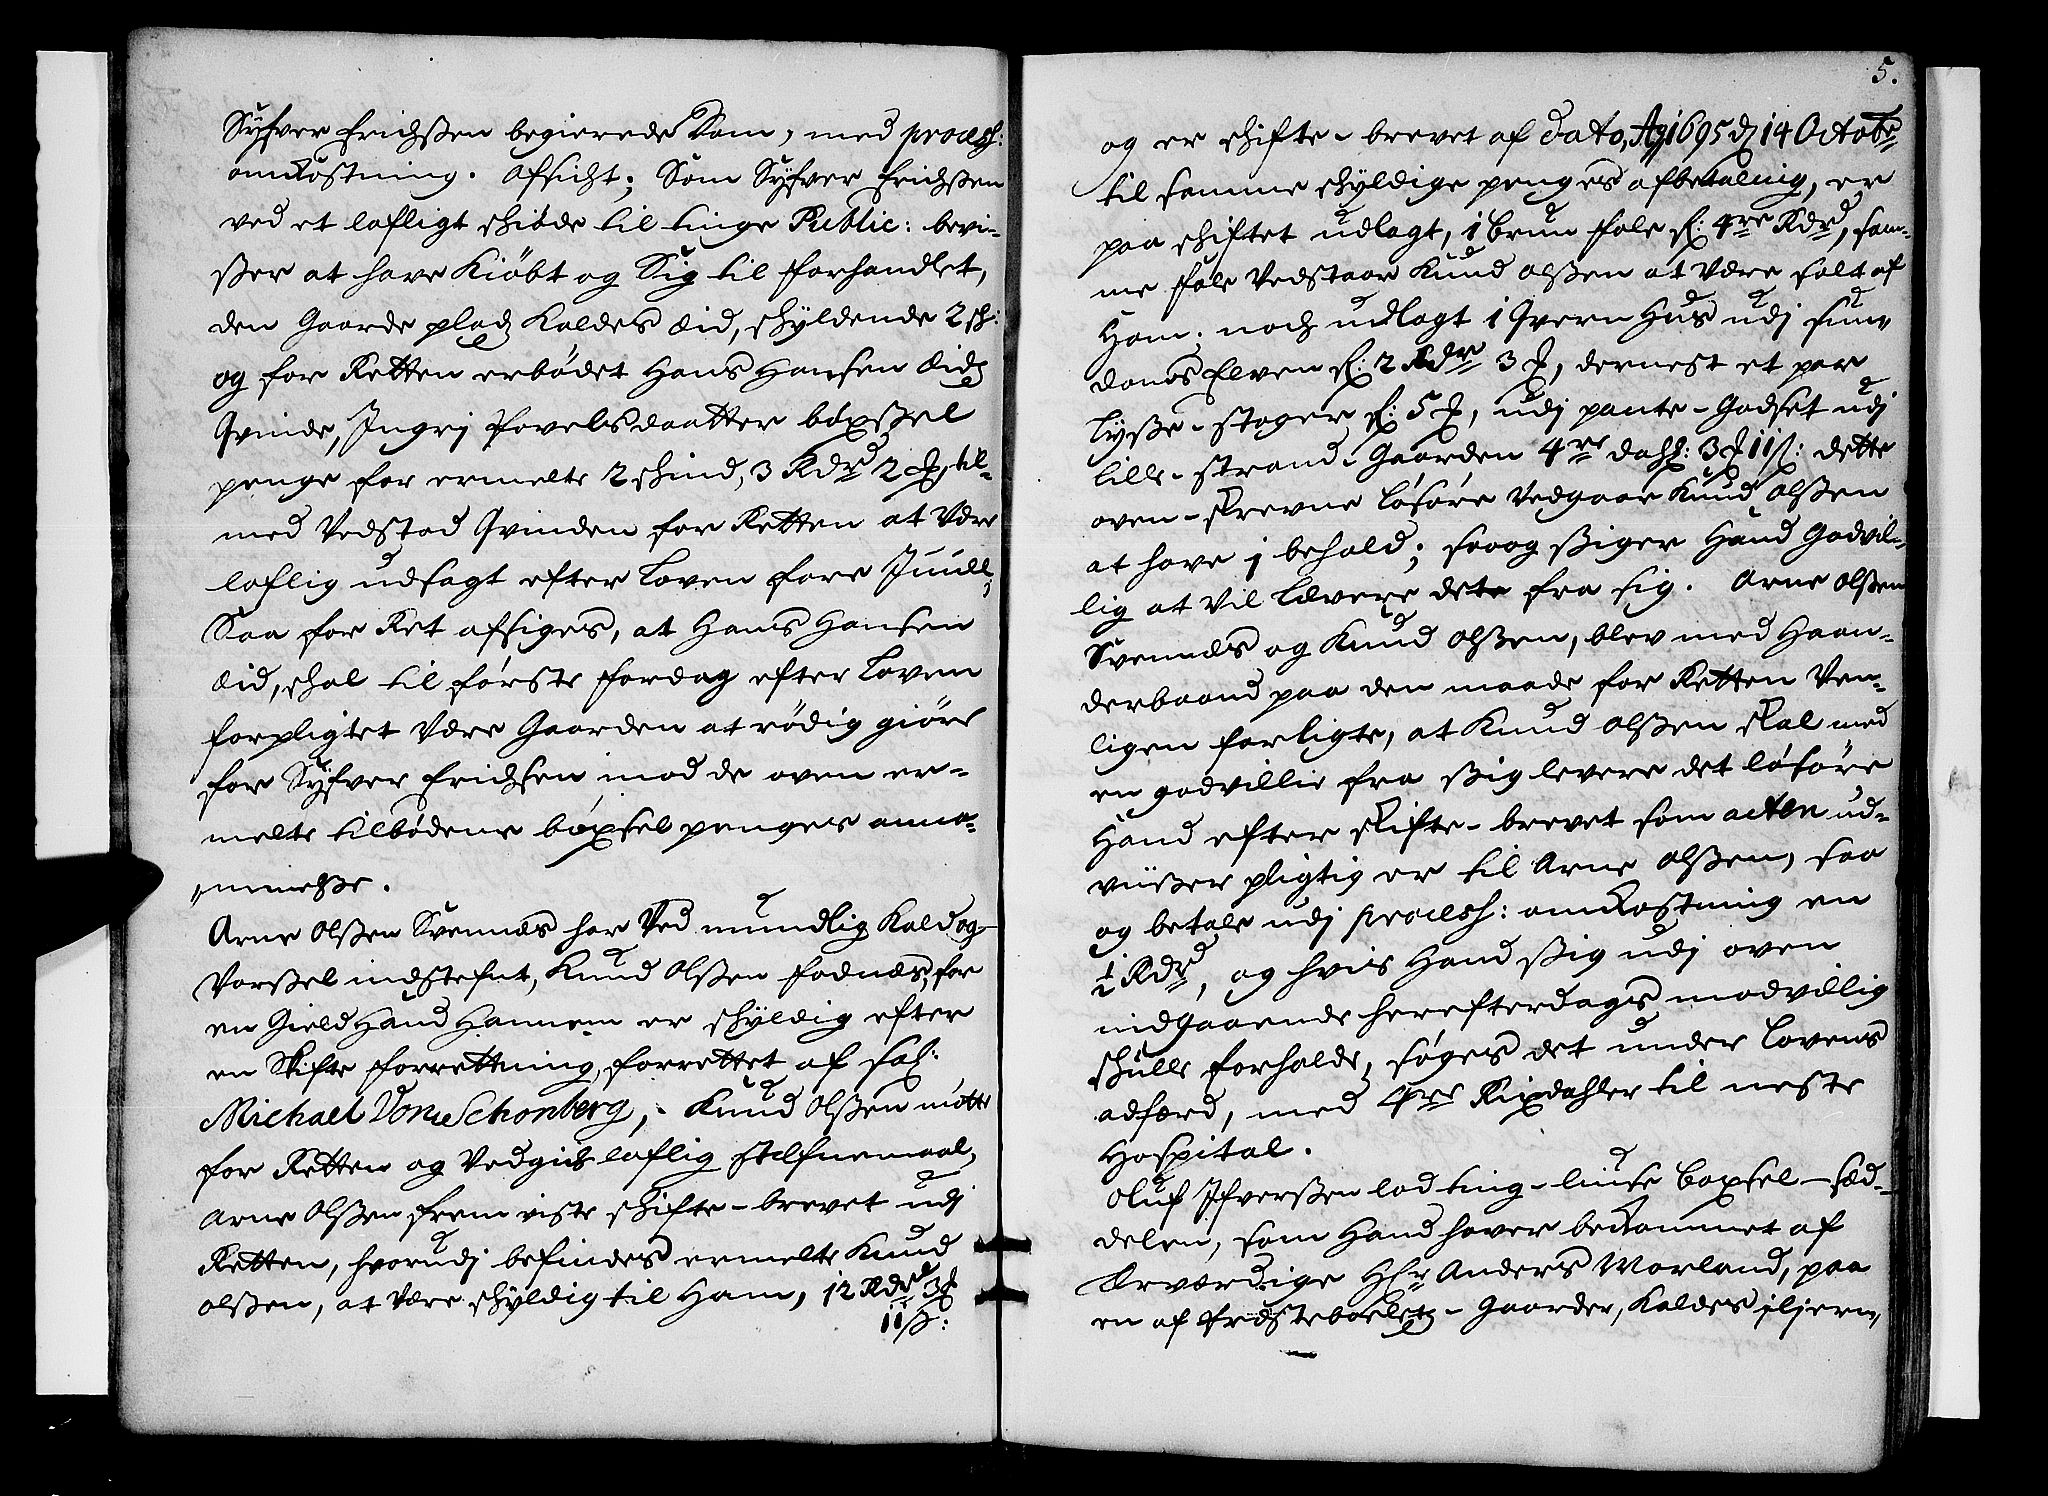 Syfver Erichssen begierede Dom, med process:
omkostning. Afsicht; Som Syfver Erichssen
ved et lofligt skiøde til tinge Public: bevi-
sser at have Kiöbt og Sig til forhandlet,
den Gaarde pladz Kaldes Eid, skyldende 2 sk:
og for Retten erbödet Hans Hansen Eidz
Qvinde, Ingri Povelsdaatter böxssel
penge for ermelte 2 skind, 3 Rdr 2 ℔, til-
med Vedstod Qvinden for Retten at være
loflig udsagt efter Loven fore Juull;
Saa for Ret afsiges, at Hans Hansen
Eid, skal til förste fardag efter Loven
forpligtet være Gaarden at rödig giöre
for Syfver Erichsen imod de oven er-
melte tilbödene böxsel penges anna-
mmelsse.
Arne Olssen Svennæs har Ved mundlig Kald og
Varssel indstefnt, Knud Olssen Fodnæs, for
en Gield Hand Hannem er skyldig efter
en Skifte forrettning, forrettet af Sal:
Michael Von Schonberg, Knud Olssen mötte
for Retten og Vedgick loflig stefnemaal,
Arne Olssen frem viste skifte-brevet udj
Retten, hvorudj befindes ermelte Knud
Olssen, at være skyldig til Ham, 12 Rdr 3 ℔
11 ß:
5.
og er skifte-brevet af Dato, Ao 1695 d 14 Octobr
til samme skyldige penges afbetalnig, er
paa skiftet udlagt, 1 brun fole f: 4re Rdr, sam-
me fole Vedstaar Knud Olssen at være solt af
Ham; noch udlagt 1 Qvern Huus udj Sun-
danes Elven f: 2 Rdr 3 ℔, dernest et par
lysse-stager f: 5 ℔, udj pante-Godset udj
Lille-strand-Gaarden 4re dahl: 3 ℔ 11 ß: dette
oven-skrevne lösöre Vedgaar Knud Olssen
at have i behold; saaog ssiger Hand Godvil-
lig at Vil Levere dete fra sig. Arne Olssen
Svennæs og Knud Olssen, blev med Haan-
derbaand paa den maade for Retten Ven-
ligen forligte, at Knud Olssen skal med
en godvillie fra ssig levere det lösöre
Hand efter skifte-brevet som acten ud-
viisser pligtig er til Arne Olssen, saa
og betale udj process: omkostning en
½ Rdr, og hvis Hand ssig udj oven
indgaaende herefterdags modvillig
skulle forholde, söges det under Lovens
adfærd, med 4re Rixdahler til neste
Hospital.
Oluf Ifverssen lod ting-liuse böxsel-sed-
delen, som Hand haver bekommet af
Ærværdige Hr Anders Morland, paa
en af Prestebolets-Gaarder, Kaldes